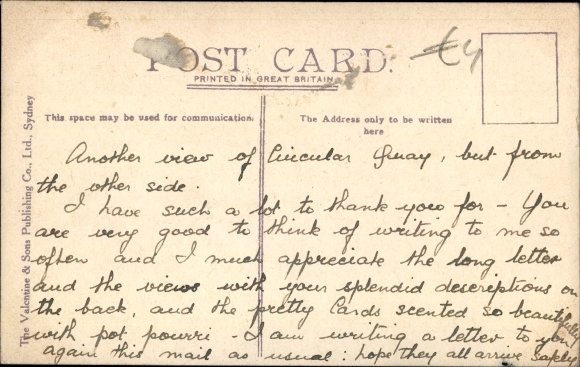 POST CARD.
PRINTED IN GREAT BRITAIN.
£4
The Valentine & Sons Publishing Co., Ltd., Sydney
This space may be used for communication.
The Address only to be written
here
Another view of Circular Quay, but from
the other side.
I have such a lot to thank you for - You
are very good to think of writing to me so
often and I much appreciate the long letter
and the views with your splendid descriptions on
the back, and the pretty Cards scented so beautifully
with pot pourri - I am writing a letter to you
again this mail as usual: hope they all arrive safely